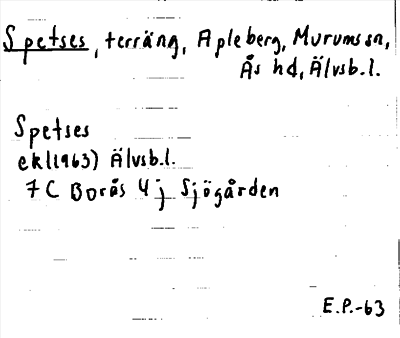 Spetses, terräng, Apleberg, Murums sn,
Ås hd, Älvsb.l.
Spetses
ekl(1963) Älvsb.l.
7C Borås 4j Sjögården
E.P.-63